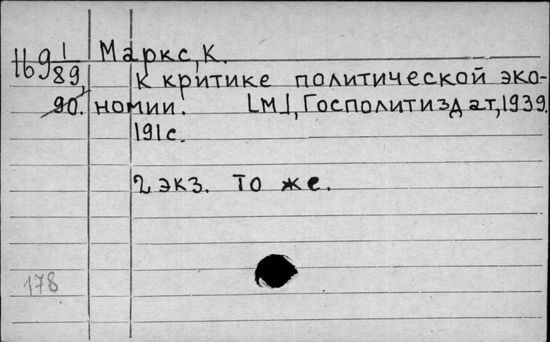 169 1/89, Маркс, К.
К критике политической эко-
90. номии. [М], Госполитиздат, 1939.
191с.
2 экз. То же.
178